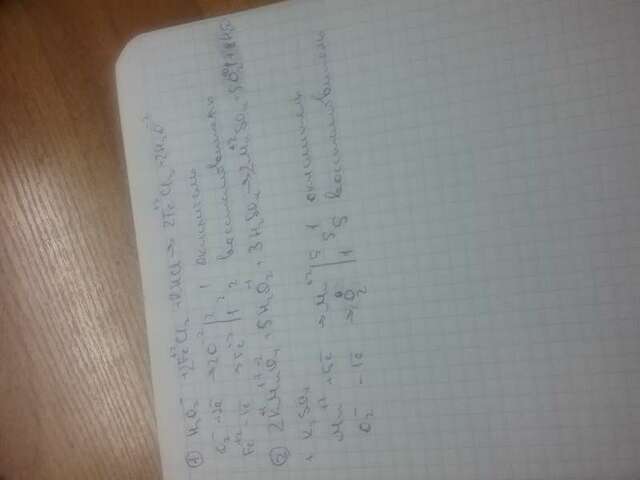 ① H₂O₂⁻ + 2Fe⁺²Cl₂ + 2HCl → 2Fe Cl₃ + 2H₂O⁻²
O₂⁻ + 2ē → 2O⁻² | 2 1 окислитель
Fe⁺² - 1ē → Fe⁺³ | 1 2 восстановитель
② 2KMnO₄ + 5H₂O₂ + 3H₂SO₄ → 2Mn⁺²SO₄ + 5O₂
+ K₂SO₄
Mn +5ē → Mn⁺² | 5 1 окислитель
O₂⁻ - 1ē → O₂ | 1 5 восстановитель